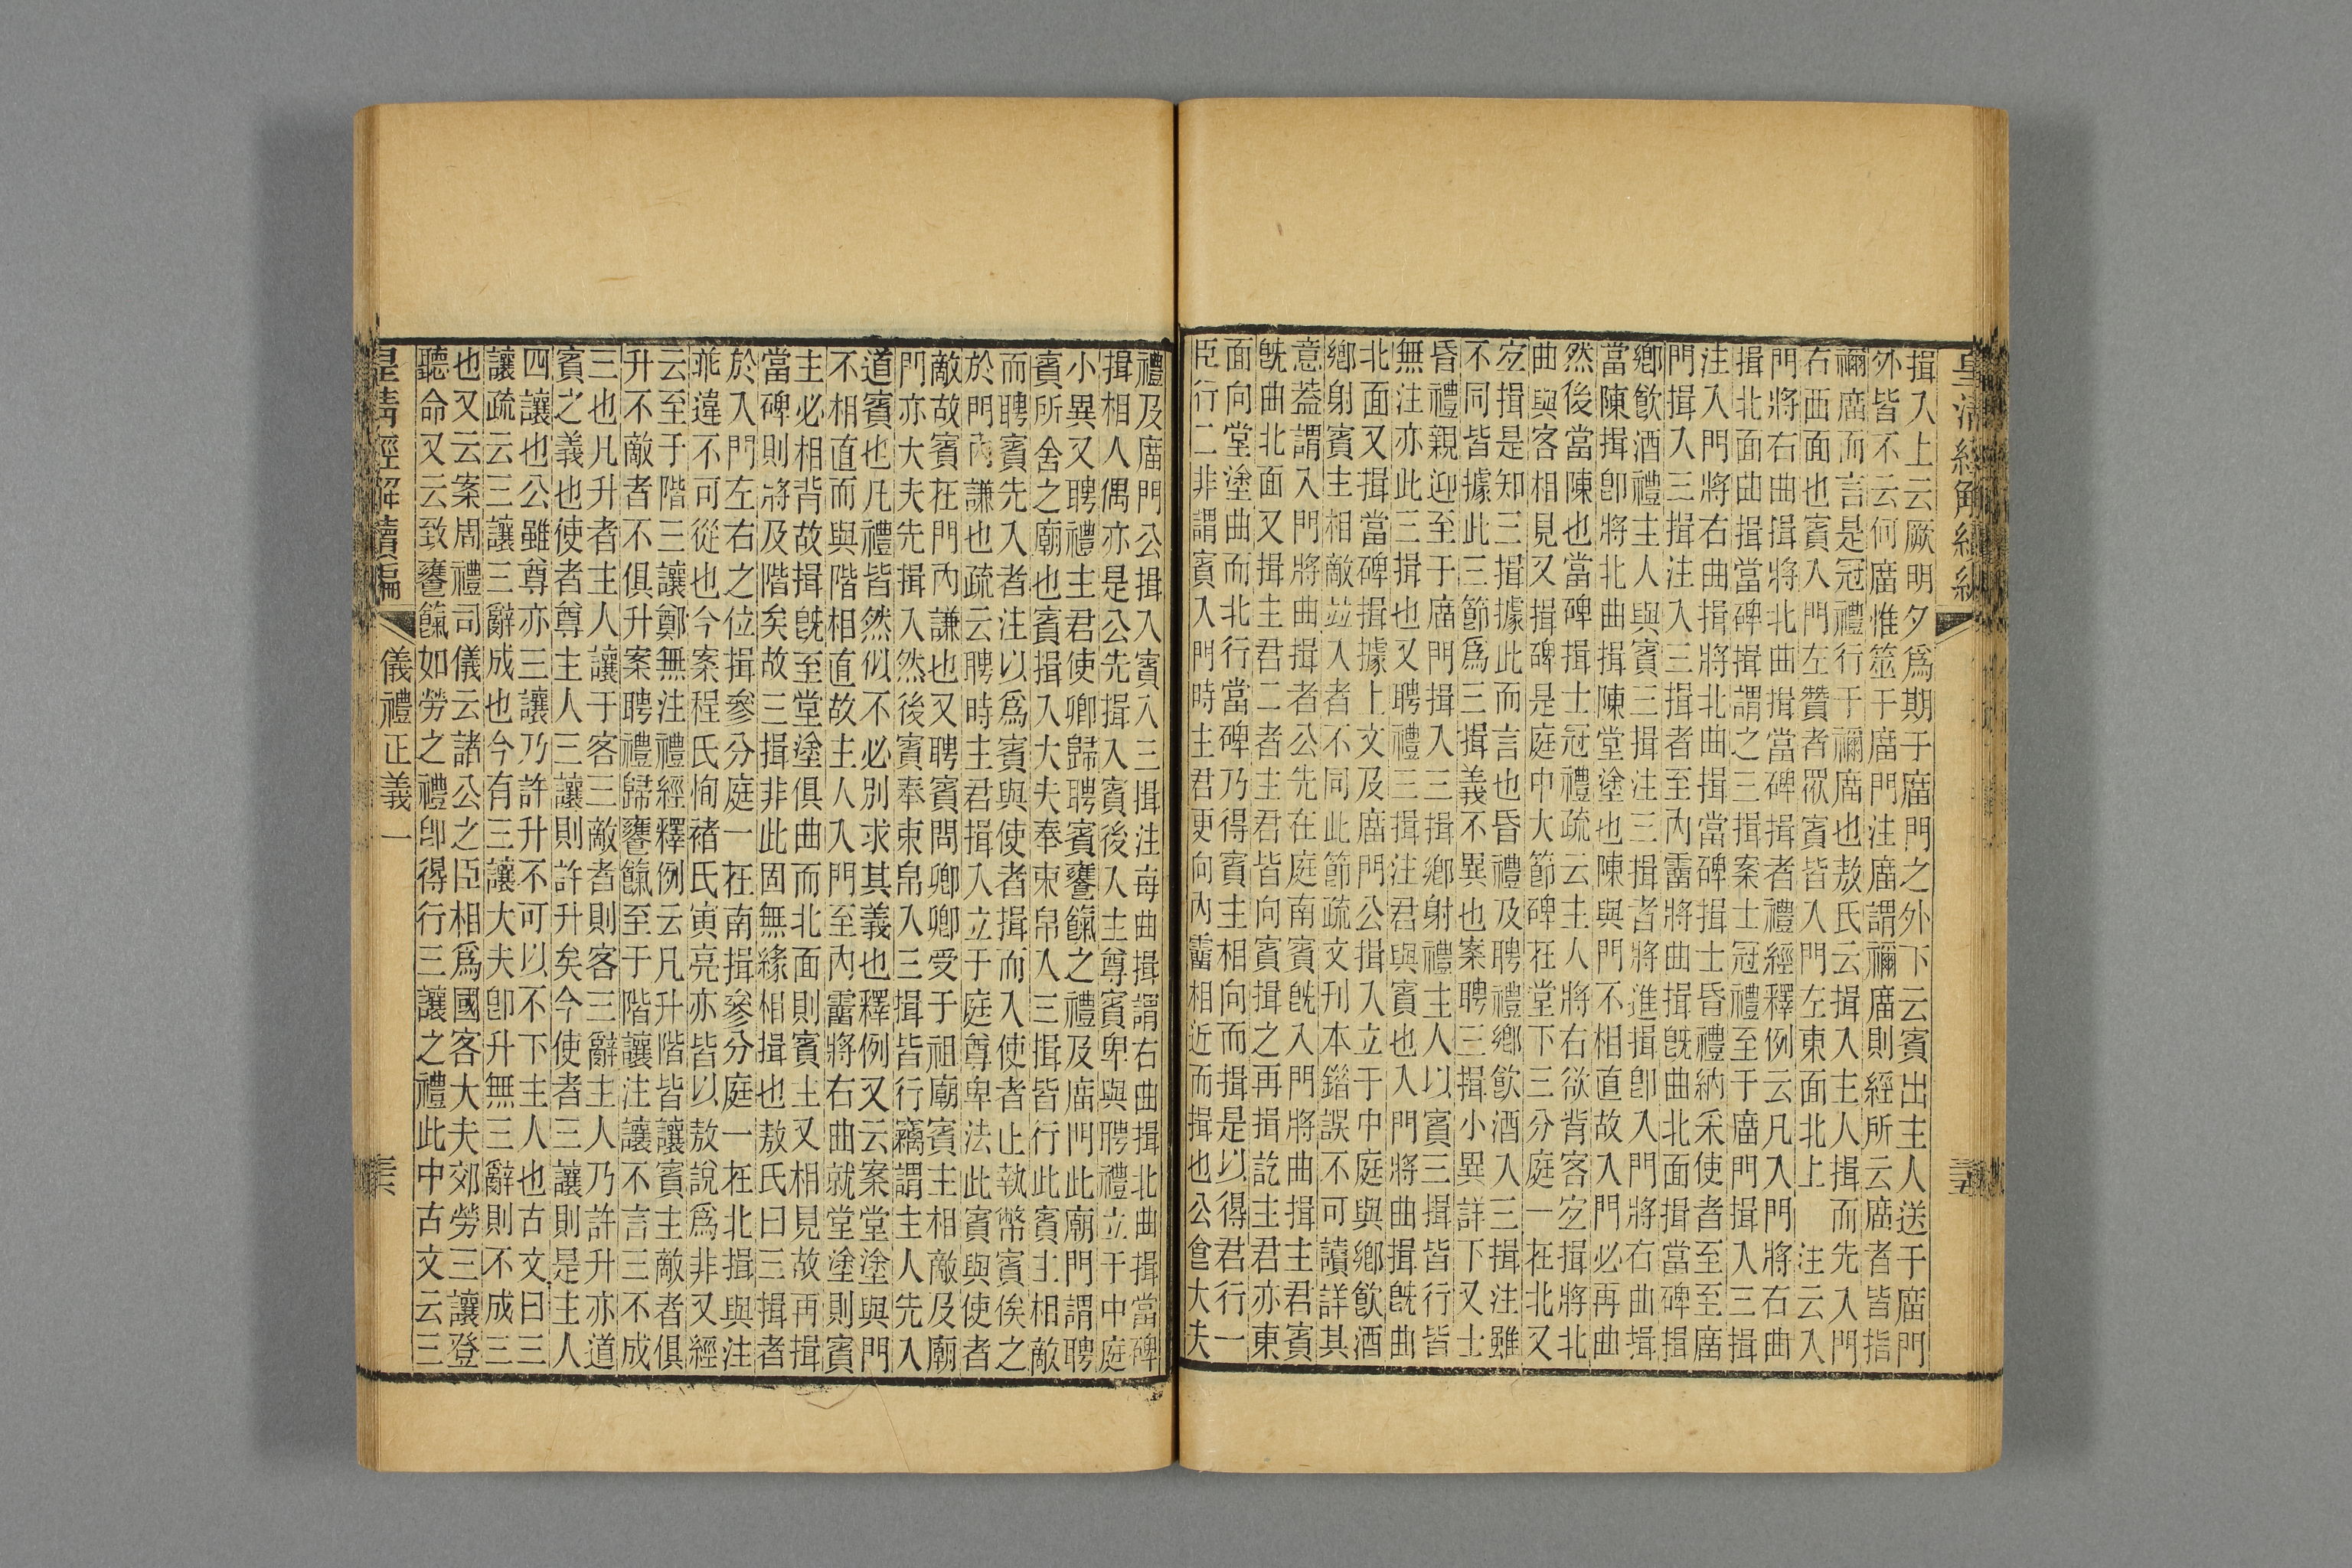 皇清經解續編
揖入上云厥明夕爲期于廟門之外下云賓出主人送于廟門
外皆不云何廟惟筮于廟門注廟謂禰廟則經所云廟者皆指
禰廟而言是冠禮行于禰廟也敖氏云揖入主人揖而先入門
右西面也賓入門左贊者眾賓皆入門左東面北上 注云入
門將右曲揖將北曲揖當碑揖者禮經釋例云凡入門將右曲
揖北面曲揖當碑揖謂之三揖案士冠禮至于廟門揖入三揖
注入門將右曲揖將北曲揖當碑揖士昏禮納采使者至至廟
門揖入三揖注入三揖者至內霤將曲揖既曲北面揖當碑揖
鄉飲酒禮主人與賓三揖注三揖者將進揖即入門將右曲揖
當陳揖即將北曲揖陳堂塗也陳與門不相直故入門必再曲
然後當陳也當碑揖士冠禮疏云主人將右欲背客宐揖將北
曲與客相見又揖碑是庭中大節碑在堂下三分庭一在北又
宐揖是知三揖據此而言也昏禮及聘禮鄉飲酒入三揖注雖
不同皆據此三節爲三揖義不異也案聘三揖小異詳下又士
昏禮親迎至于廟門揖入三揖鄉射禮主人以賓三揖皆行皆
無注亦此三揖也又聘禮三揖注君與賓也入門將曲揖既曲
北面又揖當碑揖據上文及廟門公揖入立于中庭與鄉飲酒
鄉射賓主相敵竝入者不同此節疏文刊本錯誤不可讀詳其
意蓋謂入門將曲揖者公先在庭南賓既入門將曲揖主君賓
既曲北面又揖主君二者主君皆向賓揖之再揖訖主君亦東
面向堂塗曲而北行當碑乃得賓主相向而揖是以得君行一
臣行二非謂賓入門時主君更向內霤相近而揖也公食大夫
禮及廟門公揖入賓入三揖注每曲揖謂右曲揖北曲揖當碑
揖相人偶亦是公先揖入賓後入主尊賓卑與聘禮立于中庭
小異又聘禮主君使卿歸聘賓饔餼之禮及廟門此廟門謂聘
賓所舍之廟也賓揖入大夫奉束帛入三揖皆行此賓主相敵
而聘賓先入者注以爲賓與使者揖而入使者止執幣賓俟之
於門內謙也疏云聘時主君揖入立于庭尊卑法此賓與使者
敵故賓在門內謙也又聘賓問卿卿受于祖廟賓主相敵及廟
門亦大夫先揖入然後賓奉束帛入三揖皆行竊謂主人先入
道賓也凡禮皆然似不必別求其義也釋例又云案堂塗與門
不相直而與階相直故主人入門至內霤將右曲就堂塗則賓
主必相背故揖既至堂塗俱曲而北面則賓主又相見故再揖
當碑則將及階矣故三揖非此固無緣相揖也敖氏曰三揖者
於入門左右之位揖參分庭一在南揖參分庭一在北揖與注
乖違不可從也今案程氏恂褚氏寅亮亦皆以敖說爲非又經
云至于階三讓鄭無注禮經釋例云凡升階皆讓賓主敵者俱
升不敵者不俱升案聘禮歸饔餼至于階讓注讓不言三不成
三也凡升者主人讓于客三敵者則客三辭主人乃許升亦道
賓之義也使者尊主人三讓則許升矣今使者三讓則是主人
四讓也公雖尊亦三讓乃許升不可以不下主人也古文曰三
讓疏云三讓三辭成也今有三讓大夫即升無三辭則不成三
也又云案周禮司儀云諸公之臣相爲國客大夫郊勞三讓登
聽命又云致饔餼如勞之禮即得行三讓之禮此中古文云三
皇清經解續編 儀禮正義一